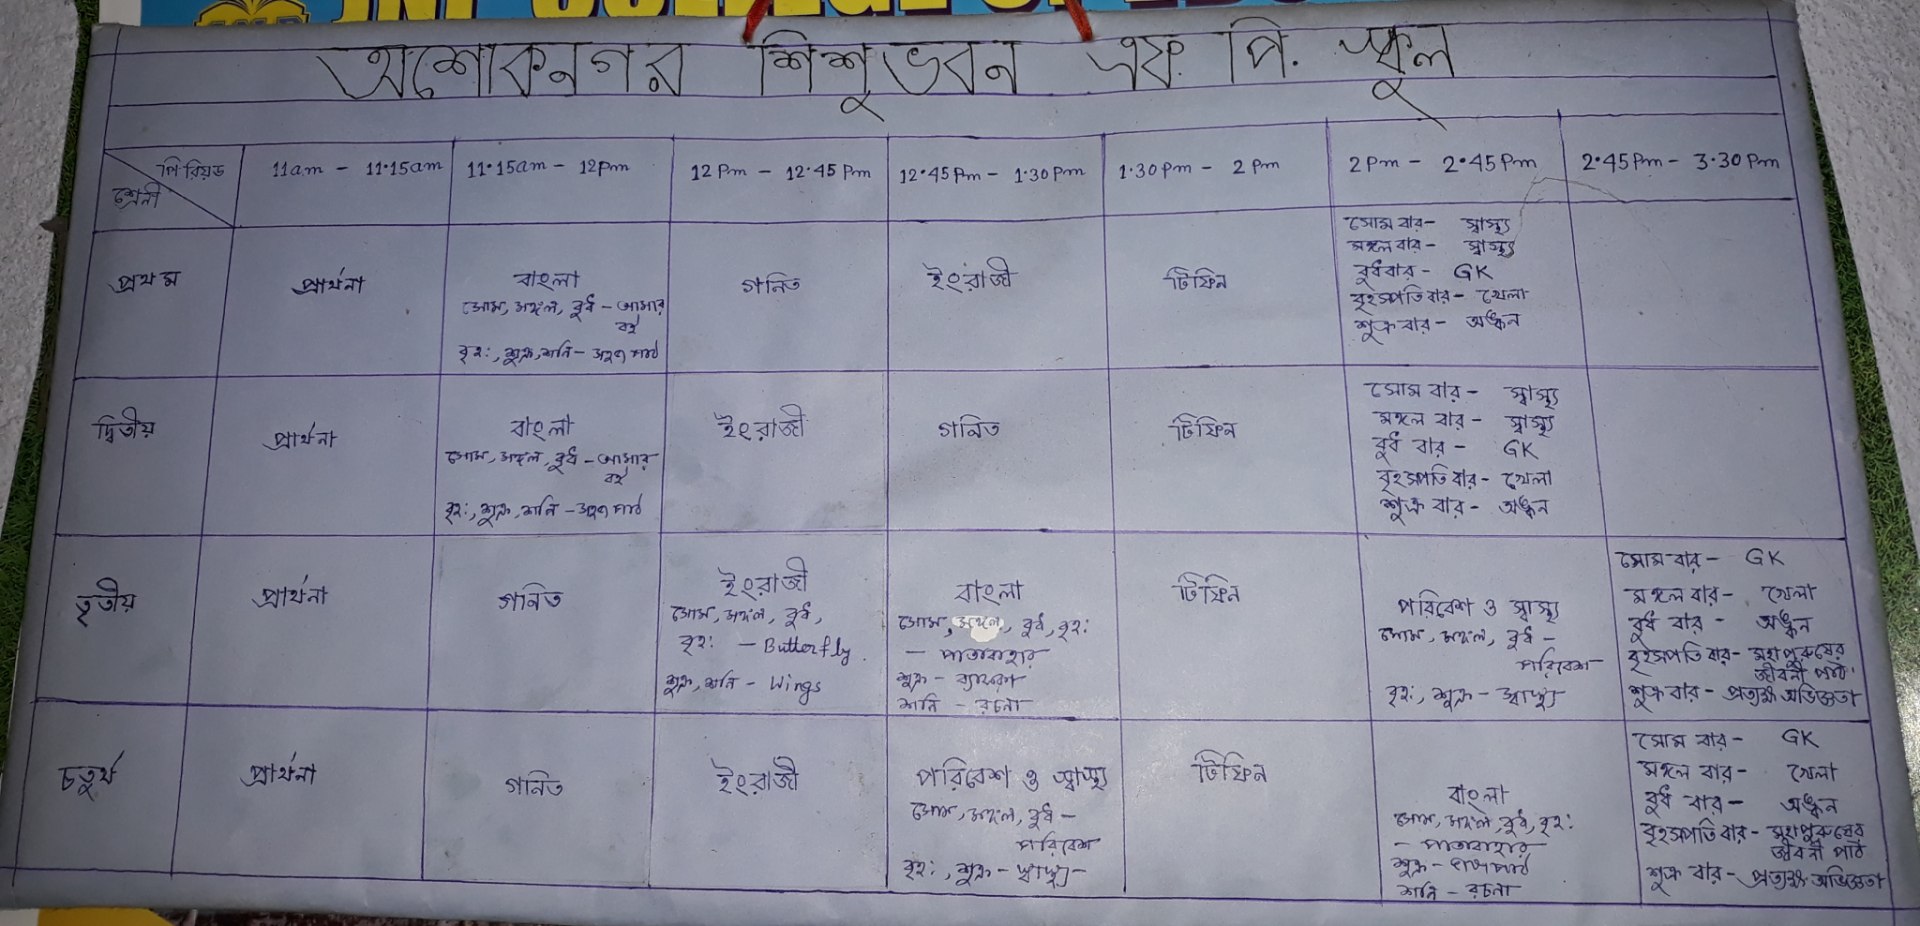 অশোকনগর শিশুভবন এফ. পি. স্কুল
পিরিয়ড
শ্রেনী
11am - 11.15am
11.15am - 12pm
12 Pm - 12.45 Pm
12.45 Pm - 1.30 Pm
1.30 pm - 2 Pm
2 Pm - 2.45 Pm
2.45 Pm - 3.30 Pm
প্রথম
প্রার্থনা
বাংলা
সোম, মঙ্গল, বুধ - আমার
বই
বৃহ:, শুক্র, শনি - সহজ পাঠ
গনিত
ইংরাজী
টিফিন
সোম বার - স্বাস্থ্য
মঙ্গল বার - স্বাস্থ্য
বুধবার - GK
বৃহস্পতি বার - খেলা
শুক্র বার - অঙ্কন
দ্বিতীয়
প্রার্থনা
বাংলা
সোম, মঙ্গল, বুধ - আমার
বই
বৃহ:, শুক্র, শনি - সহজ পাঠ
ইংরাজী
গনিত
টিফিন
সোম বার - স্বাস্থ্য
মঙ্গল বার - স্বাস্থ্য
বুধ বার - GK
বৃহস্পতি বার - খেলা
শুক্র বার - অঙ্কন
তৃতীয়
প্রার্থনা
গনিত
ইংরাজী
সোম, মঙ্গল, বুধ,
বৃহ: - Butterfly
শুক্র, শনি - Wings
বাংলা
সোম, মঙ্গল, বুধ, বৃহ:
- পাতাবাহার
শুক্র -
শনি - রচনা
টিফিন
পরিবেশ ও স্বাস্থ্য
সোম, মঙ্গল, বুধ -
পরিবেশ
বৃহ:, শুক্র - স্বাস্থ্য
সোম বার - GK
মঙ্গল বার - খেলা
বুধ বার - অঙ্কন
বৃহস্পতি বার - মহাপুরুষের
জীবনী পাঠ
শুক্র বার - প্রত্যক্ষ অভিজ্ঞতা
চতুর্থ
প্রার্থনা
গনিত
ইংরাজী
পরিবেশ ও স্বাস্থ্য
সোম, মঙ্গল, বুধ -
পরিবেশ
বৃহ:, শুক্র - স্বাস্থ্য -
টিফিন
বাংলা
সোম, মঙ্গল, বুধ, বৃহ:
- পাতাবাহার
শুক্র -
শনি - রচনা
সোম বার - GK
মঙ্গল বার - খেলা
বুধ বার - অঙ্কন
বৃহস্পতি বার - মহাপুরুষের
জীবনী পাঠ
শুক্র বার - প্রত্যক্ষ অভিজ্ঞতা